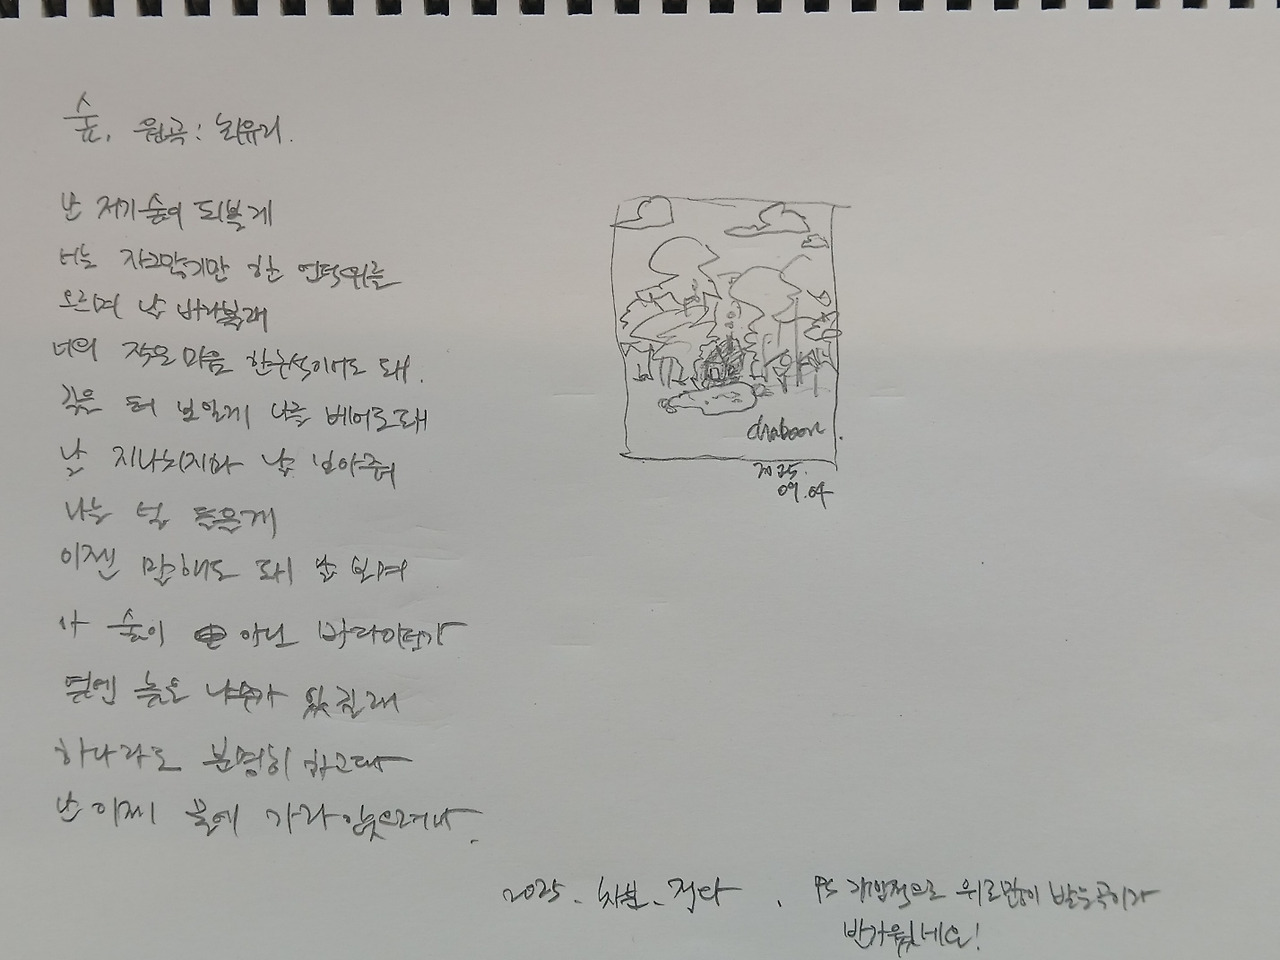 숲. 원곡 : 최유리.
난 저기 숲이 되볼게
너는 자그막기만 한 언덕위를
오르며 날 바라볼래
너의 작은 마음 한구석이어도 돼.
길을 더 보일게 나를 베어도 돼
날 지나치지마 날 보아줘
나는 널 들을게
이젠 말해도 돼 날 보며
아 숲이 아닌 바다이던가
옆엔 높은 나무가 있길래
하나라도 분명히 하고파
난 이제 물에 가라앉으려나.
chaboon.
2025.
09.04
2025. 차분. 적다. PS 개인적으로 위로많이 받는곡이라
반가웠네요!